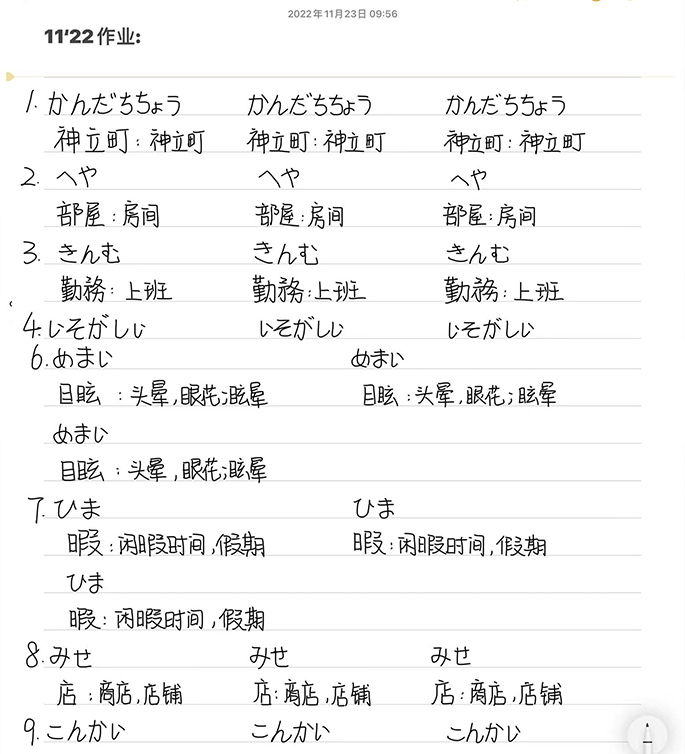 2022年11月23日 09:56
11'22作业:
1. かんだちちょう かんだちちょう かんだちちょう
神立町: 神立町 神立町: 神立町 神立町: 神立町
2. へや へや へや
部屋: 房间 部屋: 房间 部屋: 房间
3. きんむ きんむ きんむ
勤務: 上班 勤務: 上班 勤務: 上班
4. いそがしい いそがしい いそがしい
6. めまい めまい
目眩: 头晕,眼花;眩晕 目眩: 头晕,眼花;眩晕
めまい
目眩: 头晕,眼花;眩晕
7. ひま ひま
暇: 闲暇时间,假期 暇: 闲暇时间,假期
ひま
暇: 闲暇时间,假期
8. みせ みせ みせ
店: 商店,店铺 店: 商店,店铺 店: 商店,店铺
9. こんかい こんかい こんかい